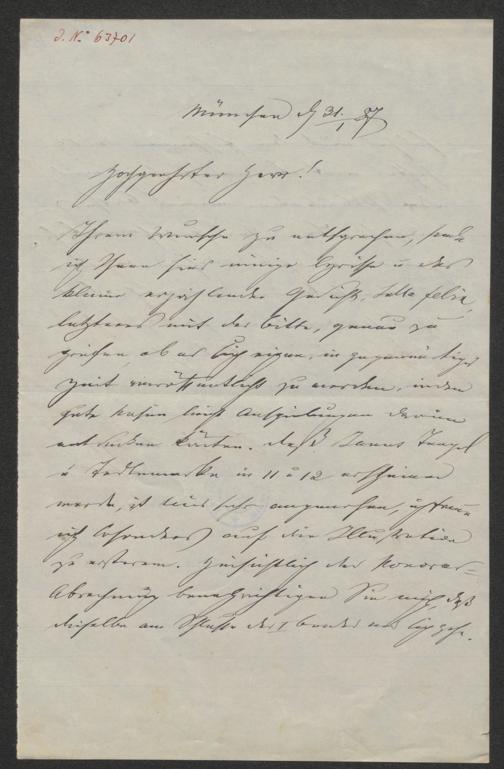 J. N.° 63701
München d 31./1. 87
Hochgeehrter Herr!
Ihrem Wunsche zu entsprechen, sende
ich Ihnen hier einige lyrische u. das
kleine erzählende Gedicht,
letzteres mit der Bitte, genau zu
prüfen, ob es sich eigne, in gegenwärtiger
Zeit veröffentlicht zu werden, indem
gute leicht Anspielungen darin
entdecken könnten. Daß
u in 11 u 12 erscheinen
werde, ist mir sehr angenehm, u freue
ich besonders auf die Illustration
zu ersterem. Hinsichtlich der Honorar-
Abrechnung benachrichtigen Sie mich, daß
dieselbe am Schlusse des I Bandes vor sich gehe.